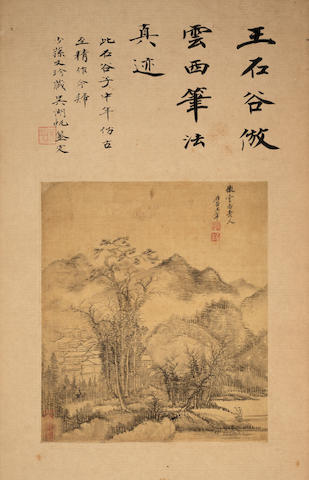 王石谷倣
雲西筆法
真迹
此石谷子中年仿古
至精作今歸
珍藏吳湖帆鑒定
倣雲西老人
王翬